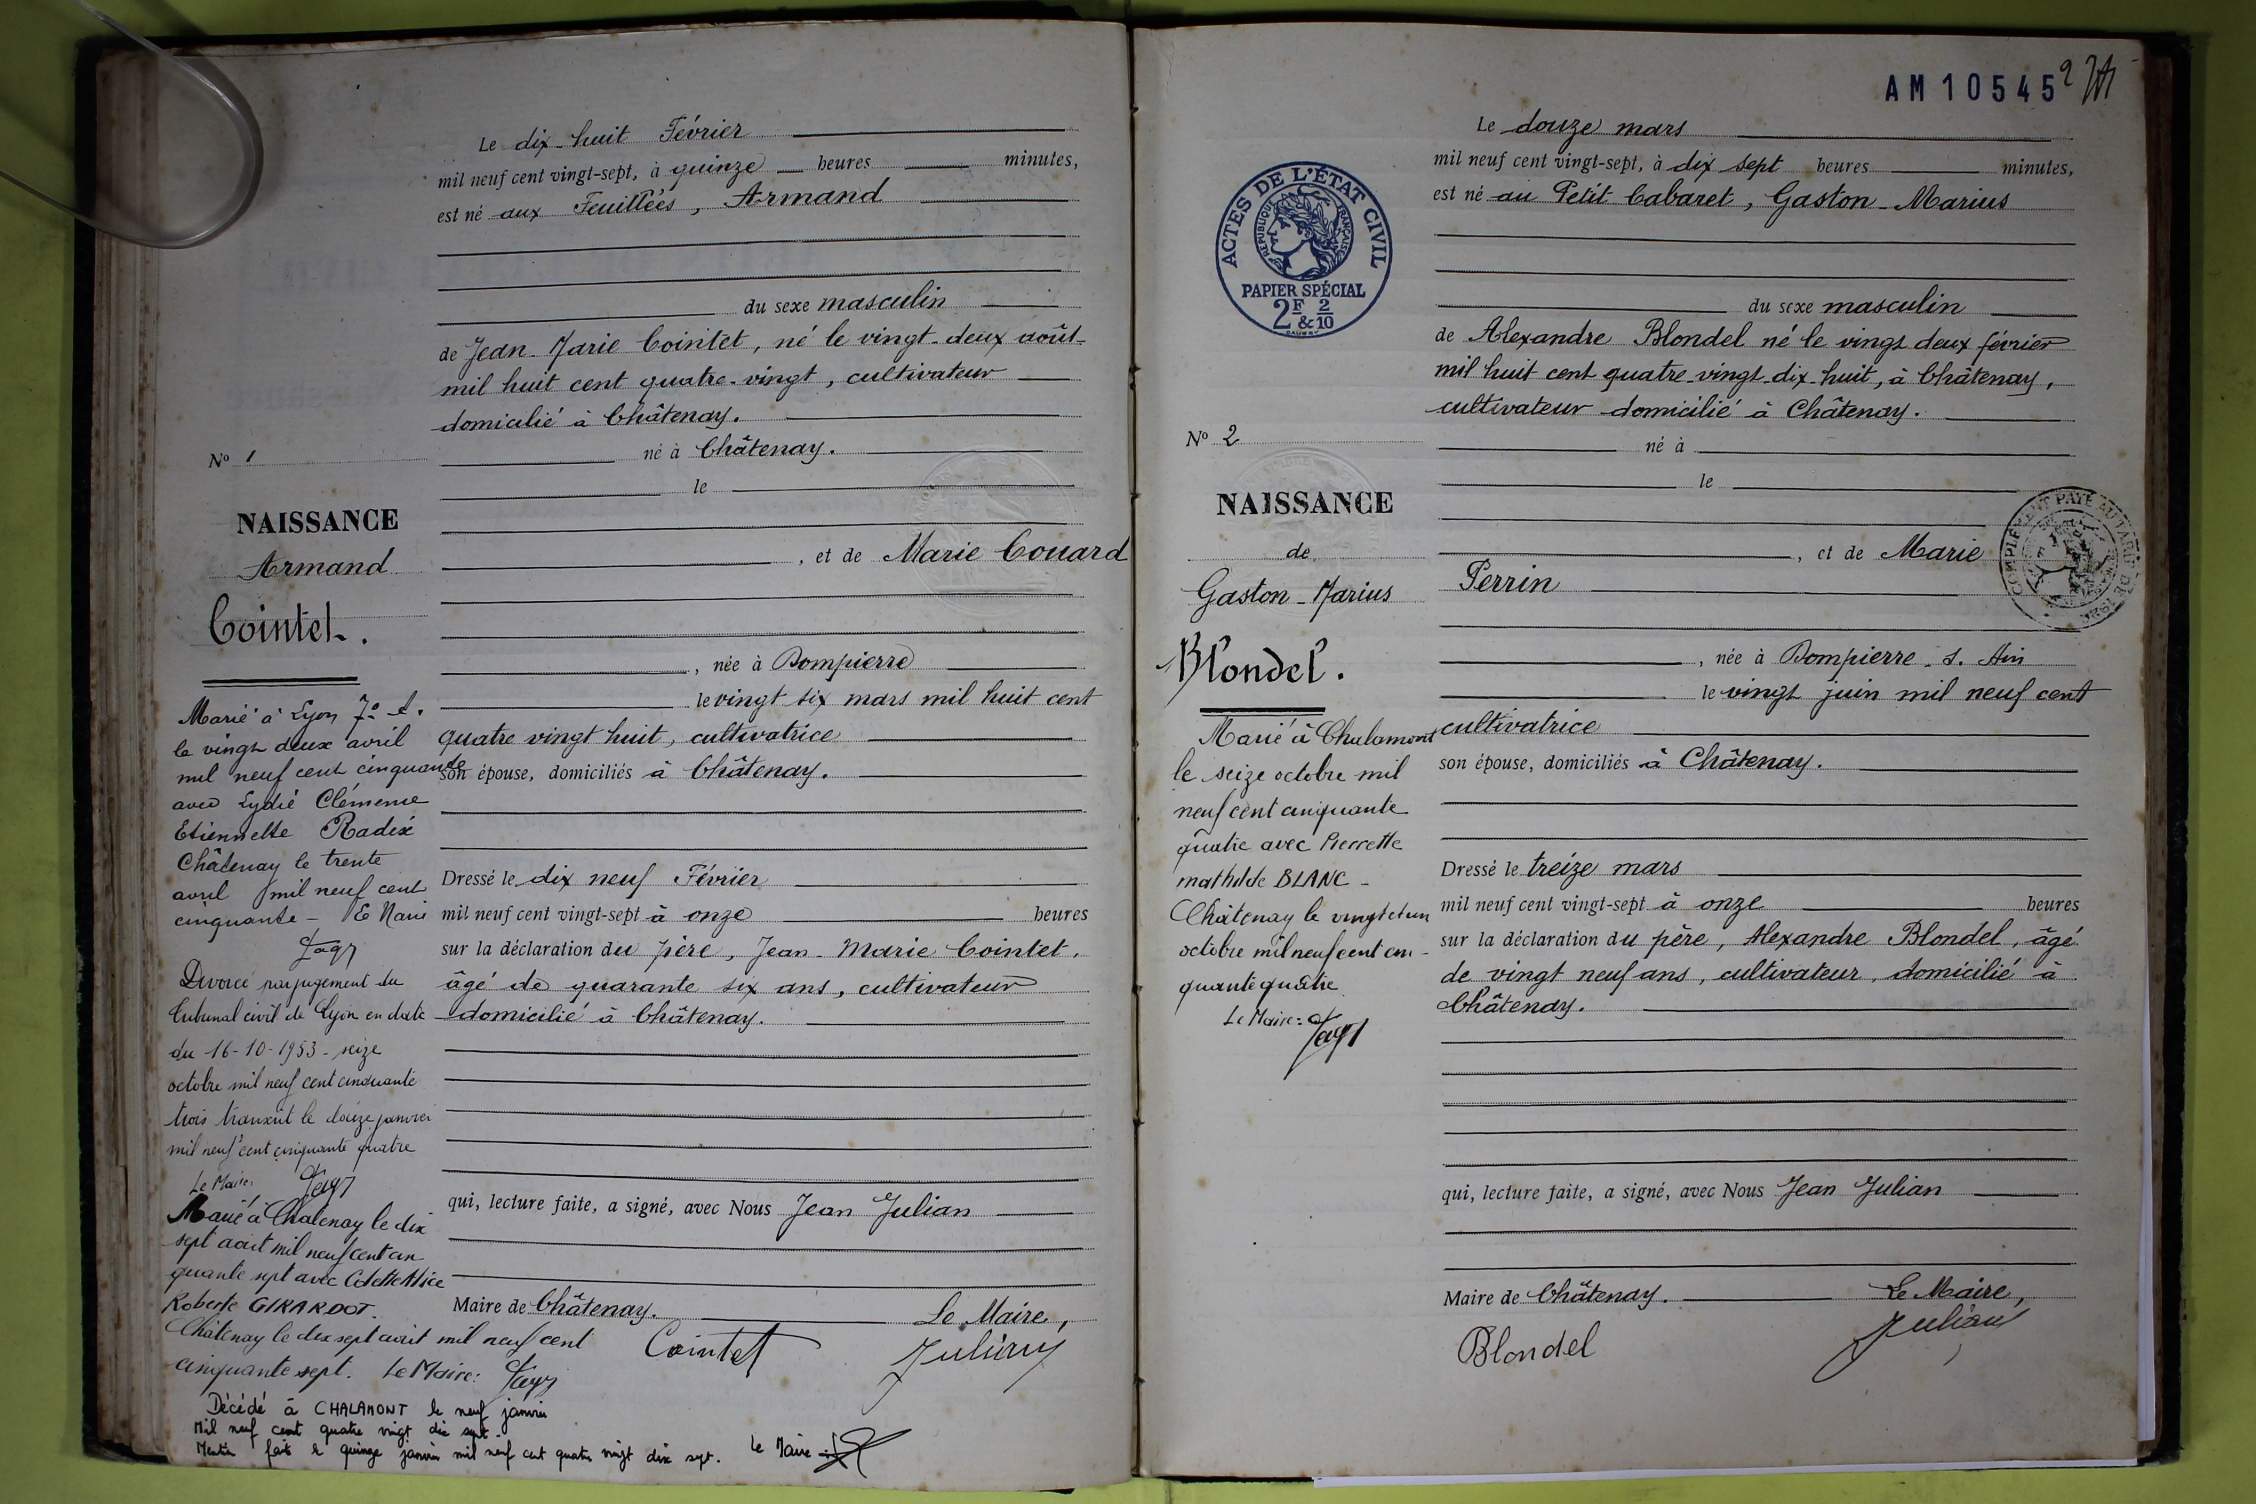 Le dix-huit Février
mil neuf cent vingt-sept, à quinze heures minutes,
est né aux Feuillées, Armand
du sexe masculin
de Jean-Marie Cointet, né le vingt-deux août
mil huit cent quatre-vingt, cultivateur
domicilié à Châtenay.
né à Châtenay.
le
, et de Marie Couard
, née à Dompierre
le vingt six mars mil huit cent
quatre vingt huit, cultivatrice
son épouse, domiciliés à Châtenay.
Dressé le dix neuf Février
mil neuf cent vingt-sept à onze heures
sur la déclaration du père, Jean-Marie Cointet,
âgé de quarante six ans, cultivateur
domicilié à Châtenay.
qui, lecture faite, a signé, avec Nous Jean Julian
Maire de Châtenay. Le Maire,
Cointet Julian
N° 1
NAISSANCE
Armand
Cointet.
Marié à Lyon 7e A.
le vingt deux avril
mil neuf cent cinquante
avec Lydie Clémence
Etiennette Radix
Châtenay le trente
avril mil neuf cent
cinquante - Le Maire
Divorcé par jugement du
tribunal civil de Lyon en date
du 16-10-1953 - seize
octobre mil neuf cent cinquante
trois transcrit le douze janvier
mil neuf cent cinquante quatre
Le Maire:
Marié à Chatenay le dix
sept août mil neuf cent cin
quante sept avec Colette Alice
Roberte GIRARDOT.
Châtenay le dix sept août mil neuf cent
cinquante sept. Le Maire:
Décédé à CHALAMONT le neuf janvier
Mil neuf cent quatre vingt dix sept
Mention faite le quinze janvier mil neuf cent quatre vingt dix sept. Le Maire
AM 10545 2
Le douze mars
mil neuf cent vingt-sept, à dix sept heures minutes,
est né au Petit Cabaret, Gaston-Marius
du sexe masculin
de Alexandre Blondel né le vingt deux février
mil huit cent quatre-vingt-dix-huit, à Châtenay,
cultivateur domicilié à Châtenay.
né à
le
, et de Marie
Perrin
, née à Dompierre-s. Ain
le vingt juin mil neuf cent
cultivatrice
son épouse, domiciliés à Châtenay.
Dressé le treize mars
mil neuf cent vingt-sept à onze heures
sur la déclaration du père, Alexandre Blondel, âgé
de vingt neuf ans, cultivateur, domicilié à
Châtenay.
qui, lecture faite, a signé, avec Nous Jean Julian
Maire de Châtenay. Le Maire,
Blondel Julian
ACTES DE L'ÉTAT CIVIL
RÉPUBLIQUE FRANÇAISE
PAPIER SPÉCIAL
2F & 2/10
N° 2
NAISSANCE
de
Gaston-Marius
Blondel.
Marié à Chalamont
le seize octobre mil
neuf cent cinquante
quatre avec Pierrette
mathilde BLANC -
Châtenay le vingt et un
octobre mil neuf cent cin-
quante quatre
Le Maire:
COMPLÉMENT PAYÉ AU TARIF DE